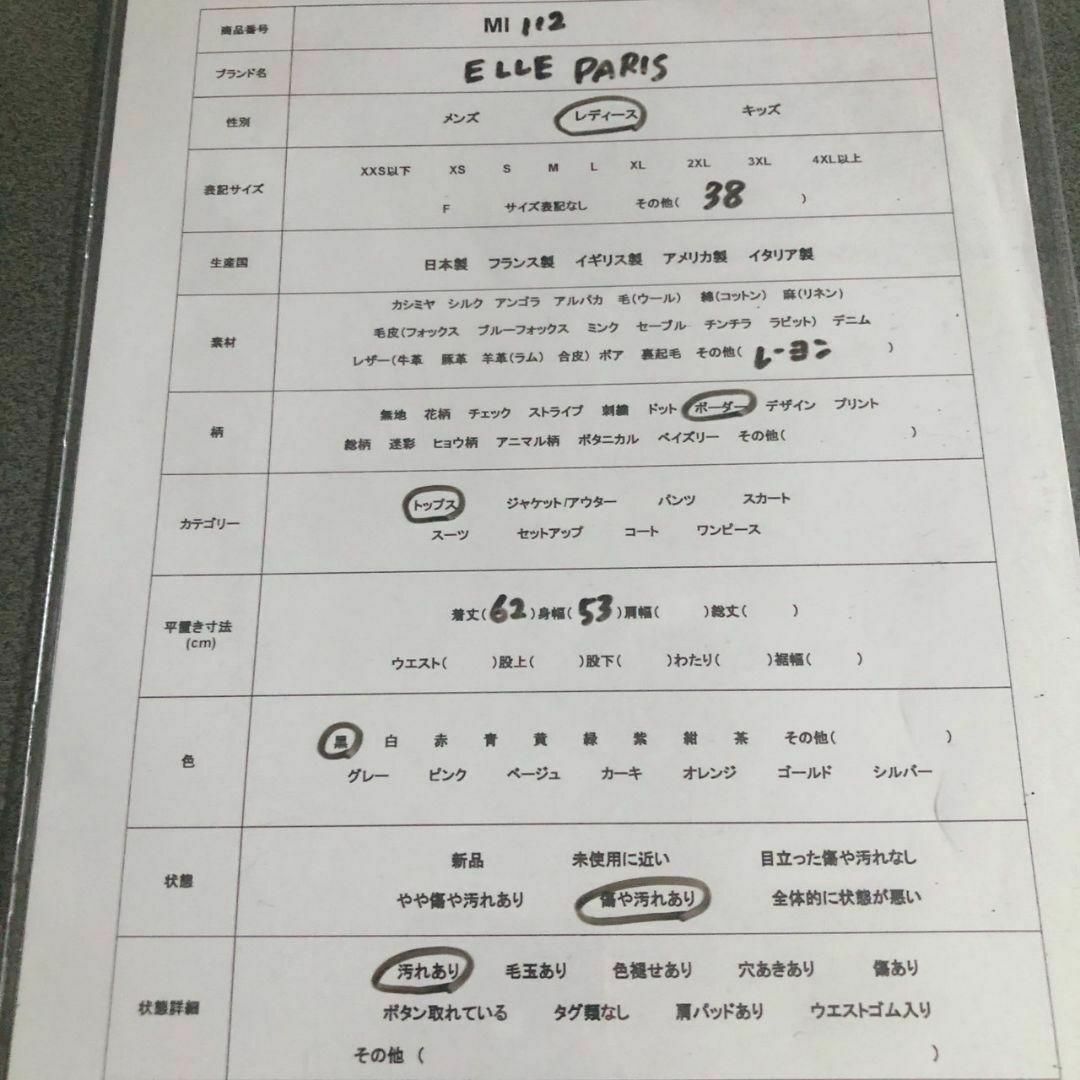 商品番号 MI 112
ブランド名 ELLE PARIS
性別 メンズ レディース キッズ
表記サイズ XXS以下 XS S M L XL 2XL 3XL 4XL以上
F サイズ表記なし その他( 38 )
生産国 日本製 フランス製 イギリス製 アメリカ製 イタリア製
素材 カシミヤ シルク アンゴラ アルパカ 毛(ウール) 綿(コットン) 麻(リネン)
毛皮(フォックス ブルーフォックス ミンク セーブル チンチラ ラビット) デニム
レザー(牛革 豚革 羊革(ラム) 合皮) ボア 裏起毛 その他( レーヨン )
柄 無地 花柄 チェック ストライプ 刺繍 ドット ボーダー デザイン プリント
総柄 迷彩 ヒョウ柄 アニマル柄 ボタニカル ペイズリー その他( )
カテゴリー トップス ジャケット/アウター パンツ スカート
スーツ セットアップ コート ワンピース
平置き寸法 着丈( 62 )身幅( 53 )肩幅( )総丈( )
(cm)
ウエスト( )股上( )股下( )わたり( )裾幅( )
色 黒 白 赤 青 黄 緑 紫 紺 茶 その他( )
グレー ピンク ベージュ カーキ オレンジ ゴールド シルバー
状態 新品 未使用に近い 目立った傷や汚れなし
やや傷や汚れあり 傷や汚れあり 全体的に状態が悪い
状態詳細 汚れあり 毛玉あり 色褪せあり 穴あきあり 傷あり
ボタン取れている タグ類なし 肩パッドあり ウエストゴム入り
その他 ( )